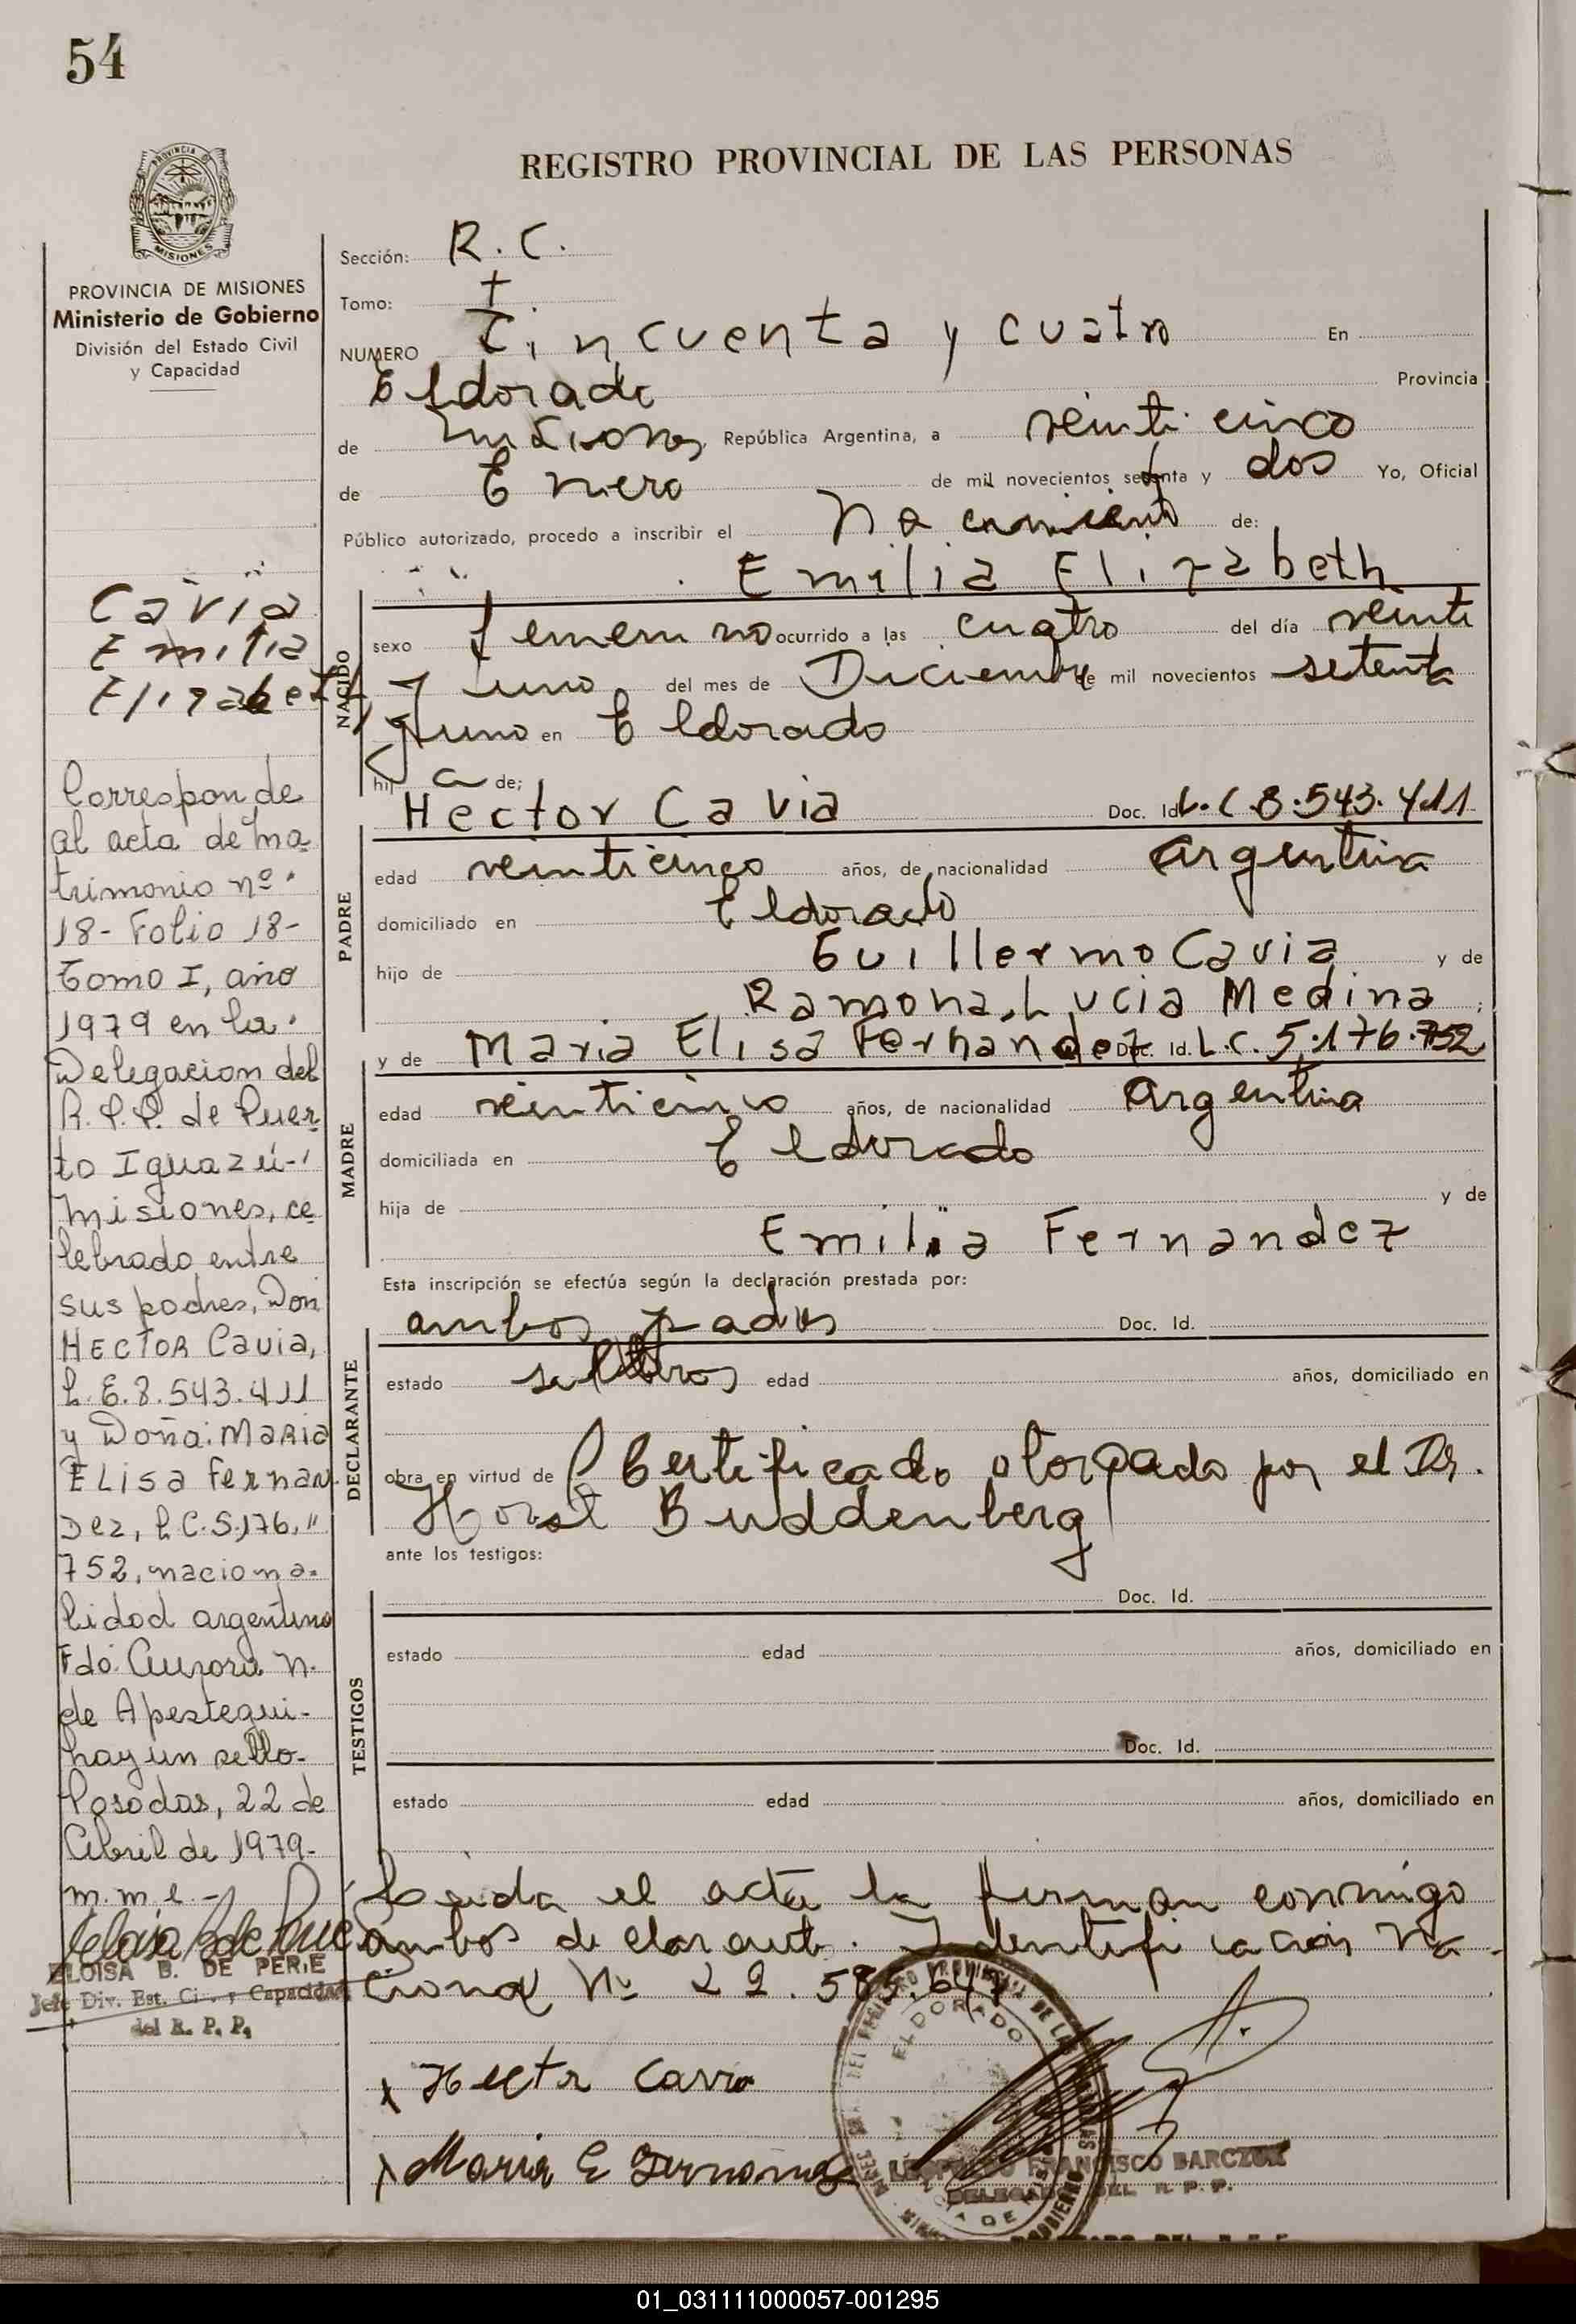 54
REGISTRO PROVINCIAL DE LAS PERSONAS
PROVINCIA DE
MISIONES
PROVINCIA DE MISIONES
Ministerio de Gobierno
División del Estado Civil
y Capacidad
Cavia
Emilia
Elizabeth
Corresponde
al acta de ma-
trimonio nº
18- Folio 18-
Tomo I, año
1979 en la
Delegacion del
R.P.P. de Puer-
to Iguazú-
Misiones, ce-
lebrado entre
sus padres, Don
HECTOR Cavia,
L.E. 8.543.411
y Doña: MARIA
ELISA Fernan
Dez, L.C. 5.176."
752, naciona-
lidad argentina
Fdo. Aurora N.
de Apestegui-
hay un sello-
Posadas, 22 de
Abril de 1979-
m.m.l.-
ELOISA B. DE PERIE
Jefe Div. Est. Civ. y Capacidad
del R. P. P.
Sección: R. C.
Tomo: I
NUMERO Cincuenta y cuatro En
Eldorado Provincia
de Misiones República Argentina, a veinti cinco
de Enero de mil novecientos setenta y dos Yo, Oficial
Público autorizado, procedo a inscribir el Nacimiento de:
Emilia Elizabeth
NACIDO
sexo femenino ocurrido a las cuatro del día veinti
y uno, del mes de Diciembre de mil novecientos setenta
y uno en Eldorado
hij a de;
Hector Cavia Doc. Id. L.C 8.543.411
PADRE
edad veinticinco años, de nacionalidad Argentina
domiciliado en Eldorado
hijo de Guillermo Cavia y de
Ramona Lucia Medina ;
y de Maria Elisa Fernandez Doc. Id. L.C. 5.176.752
MADRE
edad veinticinco años, de nacionalidad Argentina
domiciliada en Eldorado
hija de y de
Emilia Fernandez
Esta inscripción se efectúa según la declaración prestada por:
ambos padres Doc. Id.
DECLARANTE
estado solteros edad años, domiciliado en
obra en virtud de Certificado otorgado por el Dr.
Horst Buddenberg
ante los testigos:
Doc. Id.
TESTIGOS
estado edad años, domiciliado en
Doc. Id.
estado edad años, domiciliado en
Leida el acta la firman conmigo
ambos declarantes. Identificacion Na-
cional Nº 22.585.647
Hector Cavia
Maria E Fernandez
ELDORADO
LEOPOLDO FRANCISCO BARCZUK
DELEGADO DEL R. P. P.
01_031111000057-001295